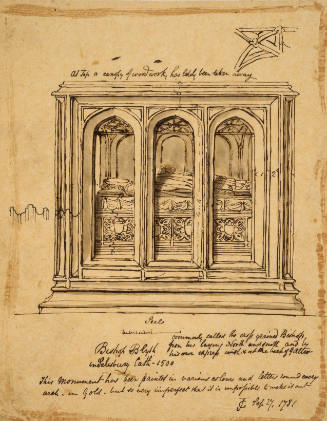 At Top a canopy of woodwork, has lately been taken away
Scale
commonly called the cross grained Bishop,
Bishop Blyth from his laying North and South, and by
his own express wish is at the head of y altar
Salisbury Cath - 1500
This Monument has been painted in various colours and letters round every
arch - in Gold - but so very imperfect that it is impossible to make it out
JC Sep 27, 1781